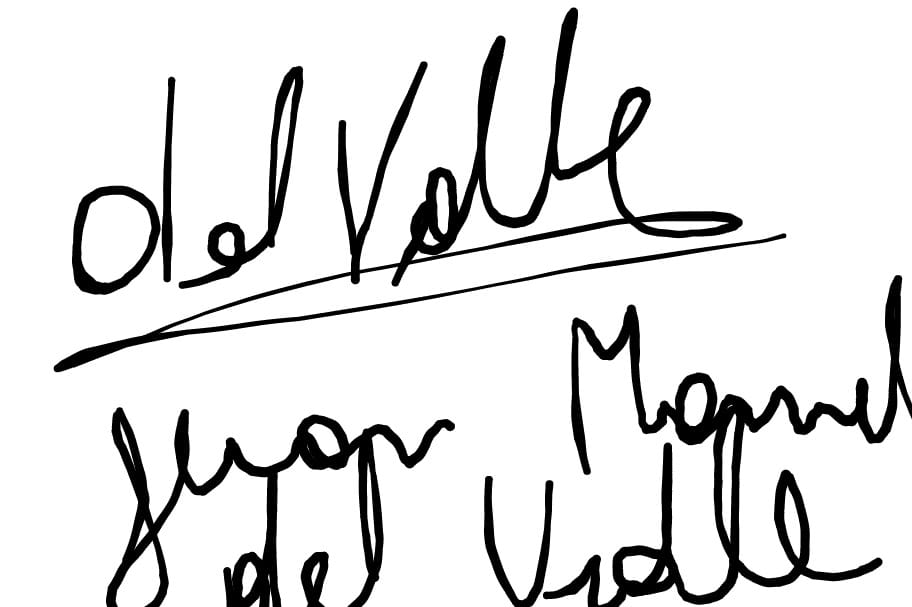 del Valle
Juan Manuel
del Valle